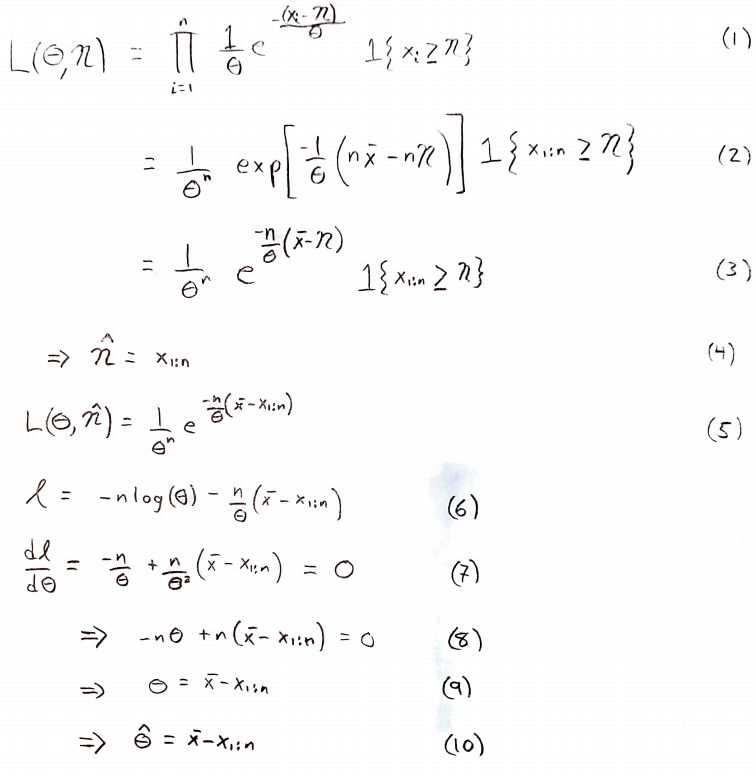 L(θ,η) = ∏_{i=1}^{n} 1/θ e^{-(x_i-η)/θ} 1{x_i ≥ η} (1)
= 1/θ^n exp[-1/θ (n x̄ - nη)] 1{x_{1:n} ≥ η} (2)
= 1/θ^n e^{-n/θ (x̄-η)} 1{x_{1:n} ≥ η} (3)
⇒ η̂ = x_{1:n} (4)
L(θ,η̂) = 1/θ^n e^{-n/θ (x̄-x_{1:n})} (5)
ℓ = -n log(θ) - n/θ (x̄-x_{1:n}) (6)
dℓ/dθ = -n/θ + n/θ² (x̄-x_{1:n}) = 0 (7)
⇒ -nθ + n(x̄-x_{1:n}) = 0 (8)
⇒ θ = x̄-x_{1:n} (9)
⇒ θ̂ = x̄-x_{1:n} (10)